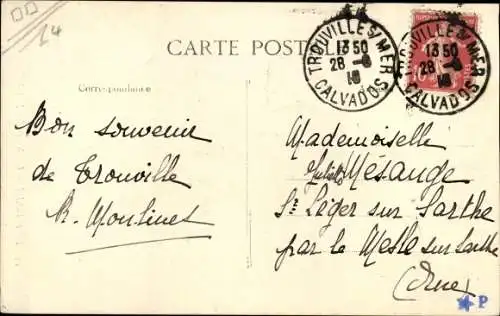 14
CARTE POSTALE
TROUVILLE S/ MER
13 50
28 - 8
18
CALVADOS
TROUVILLE S/ MER
13 50
28 - 8
18
CALVADOS
Correspondance
Bon souvenir
de Trouville
Moulinet
Mademoiselle
Juliette
Mésange
St Léger sur Sarthe
par le Mesle sur Sarthe
(Orne)
P